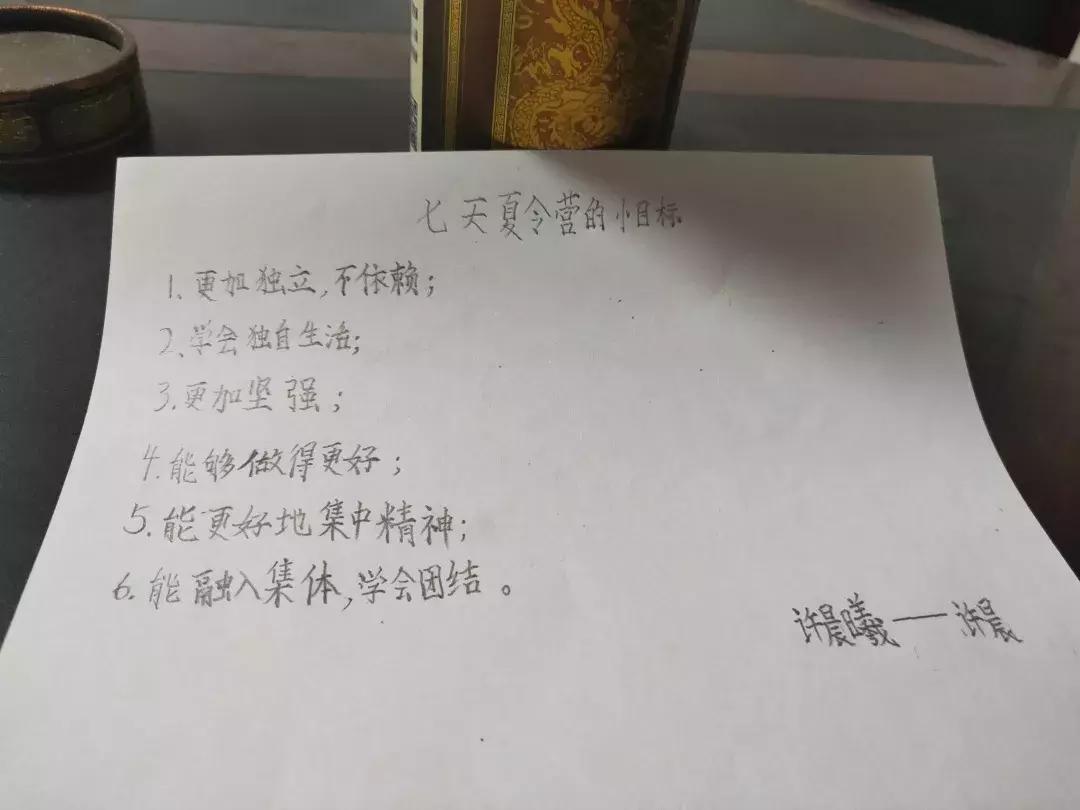 七天夏令营的小目标
1.更加独立,不依赖;
2、学会独自生活;
3.更加坚强;
4.能够做得更好;
5.能更好地集中精神;
6.能融入集体,学会团结。
许晨曦——许晨